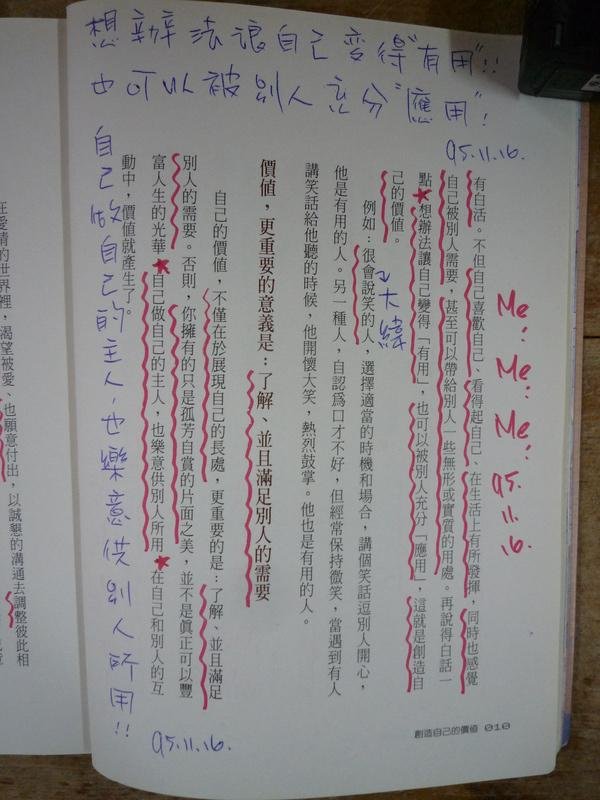 想辦法讓自己變得"有用"!!
也可以被別人充分"應用"!
95.11.16.
有白活。不但自己喜歡自己、看得起自己、在生活上有所發揮,同時也感覺
自己被別人需要,甚至可以帶給別人一些無形或實質的用處。再說得白話一
點★想辦法讓自己變得「有用」,也可以被別人充分「應用」,這就是創造自
己的價值。
例如:很會說笑的人,選擇適當的時機和場合,講個笑話逗別人開心,
他是有用的人。另一種人,自認為口才不好,但經常保持微笑,當遇到有人
講笑話給他聽的時候,他開懷大笑,熱烈鼓掌。他也是有用的人。
價值,更重要的意義是:了解、並且滿足別人的需要
自己的價值,不僅在於展現自己的長處,更重要的是:了解、並且滿足
別人的需要。否則,你擁有的只是孤芳自賞的片面之美,並不是真正可以豐
富人生的光華★自己做自己的主人,也樂意供別人所用★在自己和別人的互
動中,價值就產生了。
Me! Me! Me! 95.11.16.
大緯
自己做自己的主人,也樂意供別人所用!!
95.11.16.
創造自己的價值 010
在愛情的世界裡,渴望被愛、也願意付出,以誠懇的溝通去調整彼此相